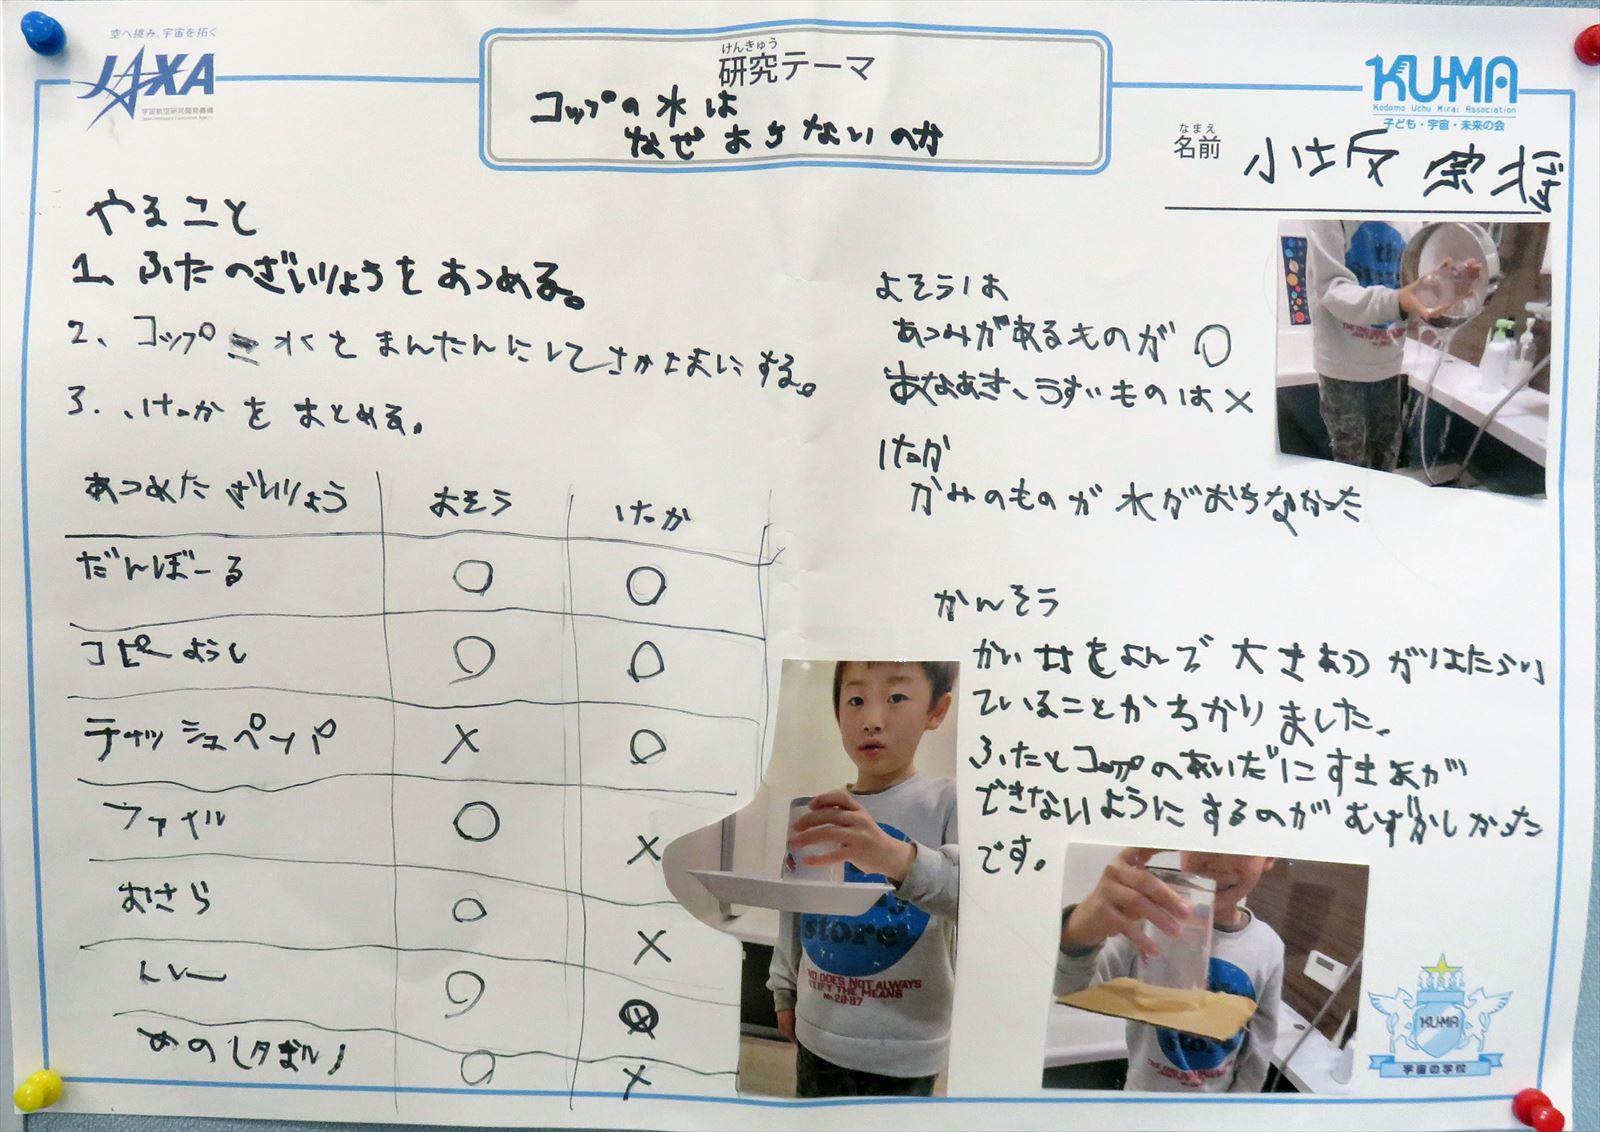 空へ挑み、宇宙を拓く
JAXA
宇宙航空研究開発機構
Japan Aerospace Exploration Agency
けんきゅう
研究テーマ
コップの水は
なぜおちないのか
KU-MA
Kodomo Uchu Mirai Association
子ども・宇宙・未来の会
なまえ
名前
小坂 宗将
やること
1、ふたのざいりょうをあつめる。
2、コップ 水をまんたんにしてさかさまにする。
3、けっかをまとめる。
あつめたざいりょう よそう けっか
だんぼーる ○ ○
コピーようし ○ ○
テッシュペーパ × ○
ファイル ○ ×
おさら ○ ×
トレー ○ ×
ぎんのしたボール ○ ×
よそうは
あつみがあるものが○
あなあき、うすいものは×
けっか
かみのものが水がおちなかった
かんそう
かいせをよんで大きあつがはたらい
ていることがわかりました。
ふたとコップのあいだにすきまが
できないようにするのがむずかしかった
です。
store
NO DOES NOT ALWAYS
TIFY THE MEANS
No.20-87
KU-MA
宇宙の学校